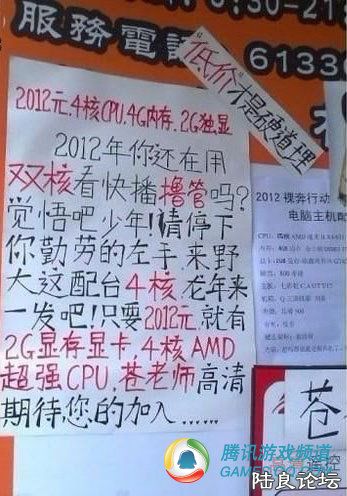 :30-21
服務電話
6133
低价才是硬道理
2012元,4核CPU,4G内存,2G独显
2012年你还在用
双核看快播撸管吗?
觉悟吧少年!请停下
你勤劳的左手,来野
大这配台4核,龙年来
一发吧!只要2012元,就有
2G显存显卡,4核AMD
超强CPU,苍老师高清
期待您的加入……
2012 裸奔行动
电脑主机配
苍
腾讯游戏频道
陆良论坛